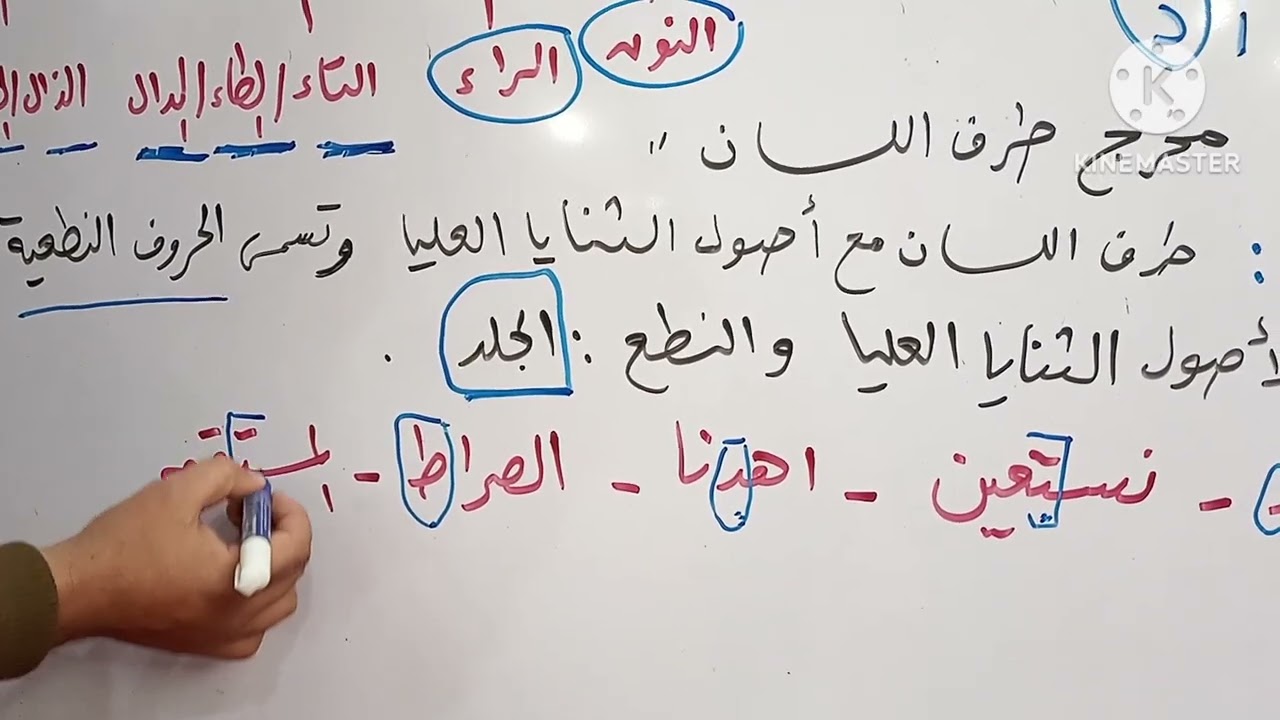 د
النون الراء التاء / الطاء / الدال الذال
مخرج طرف اللسان "
: طرف اللسان مع أصول الثنايا العليا وتسمى الحروف النطعية
لأصول الثنايا العليا والنطع : الجلد .
- نستعين - اهدنا - الصراط -
KINEMASTER